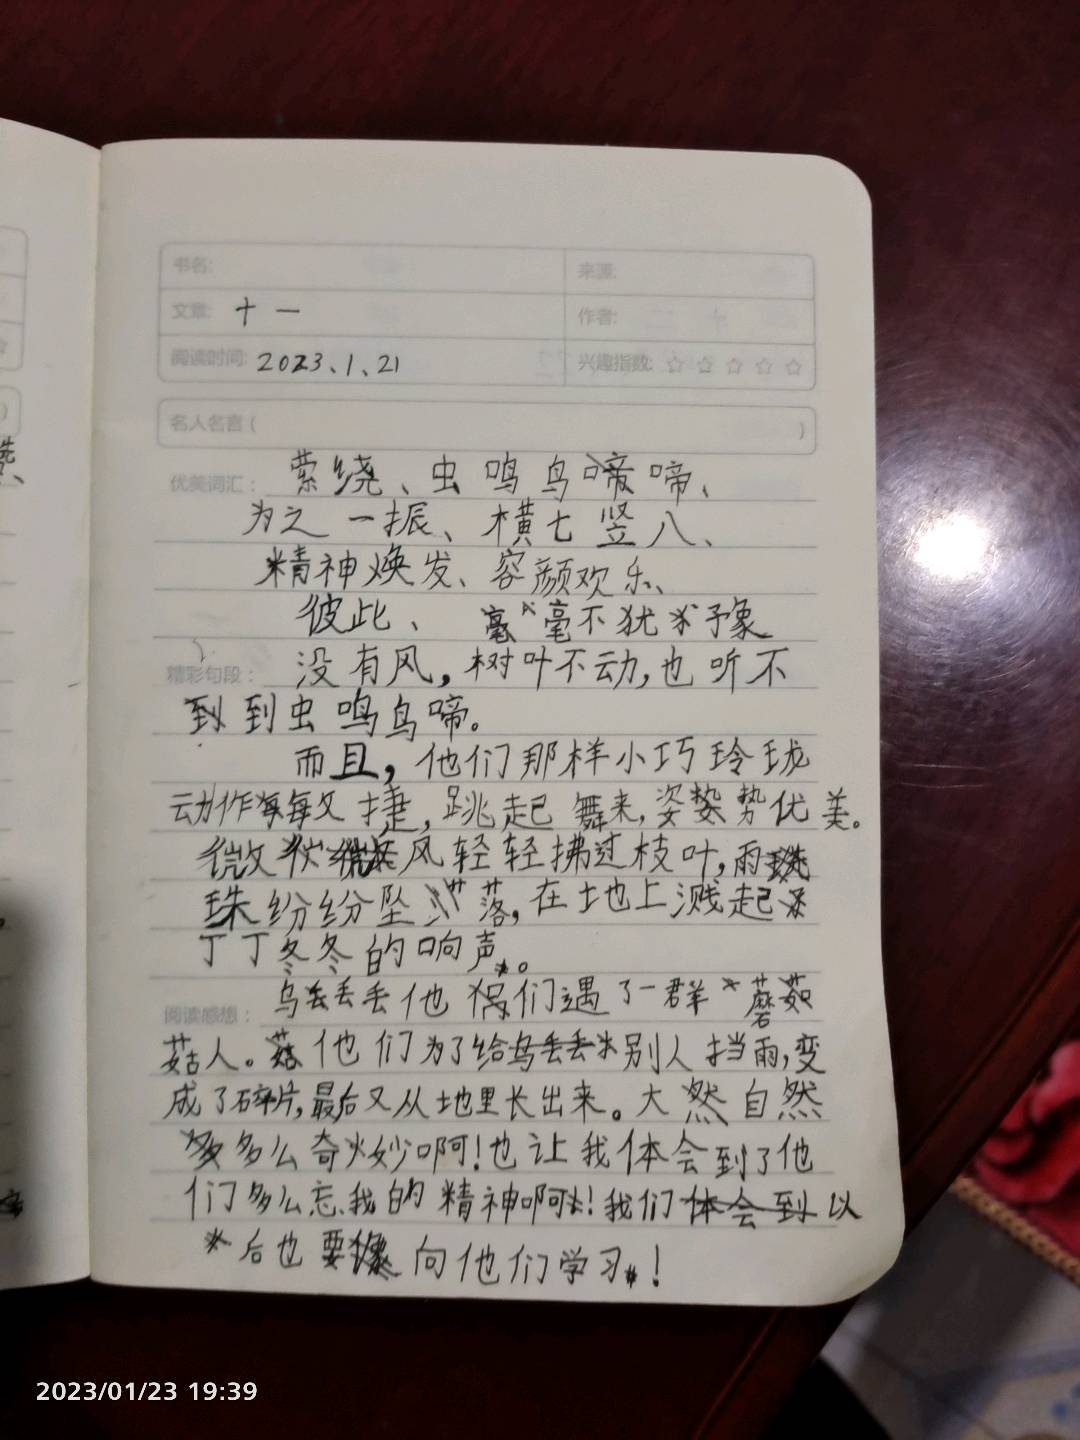 书名:
来源:
文章: 十一
作者:
阅读时间: 2023、1、21
兴趣指数: ☆ ☆ ☆ ☆ ☆
名人名言 ( )
优美词汇: 萦绕、虫鸣鸟啼、
为之一振、横七竖八、
精神焕发、容颜欢乐、
彼此、毫不犹予豫
精彩句段: 没有风，树叶不动，也听不
到虫鸣鸟啼。
而且，他们那样小巧玲珑
动作每文捷，跳起舞来，姿势优美。
微风轻轻拂过枝叶，雨
珠纷纷坠落，在地上溅起
丁丁冬冬的响声。
阅读感想: 乌丢丢他们遇了一群蘑
菇人。他们为了给别人挡雨，变
成了碎片，最后又从地里长出来。大自然
多么奇妙啊！也让我体会到了他
们多么忘我的精神啊！我们以
后也要向他们学习！
2023/01/23 19:39